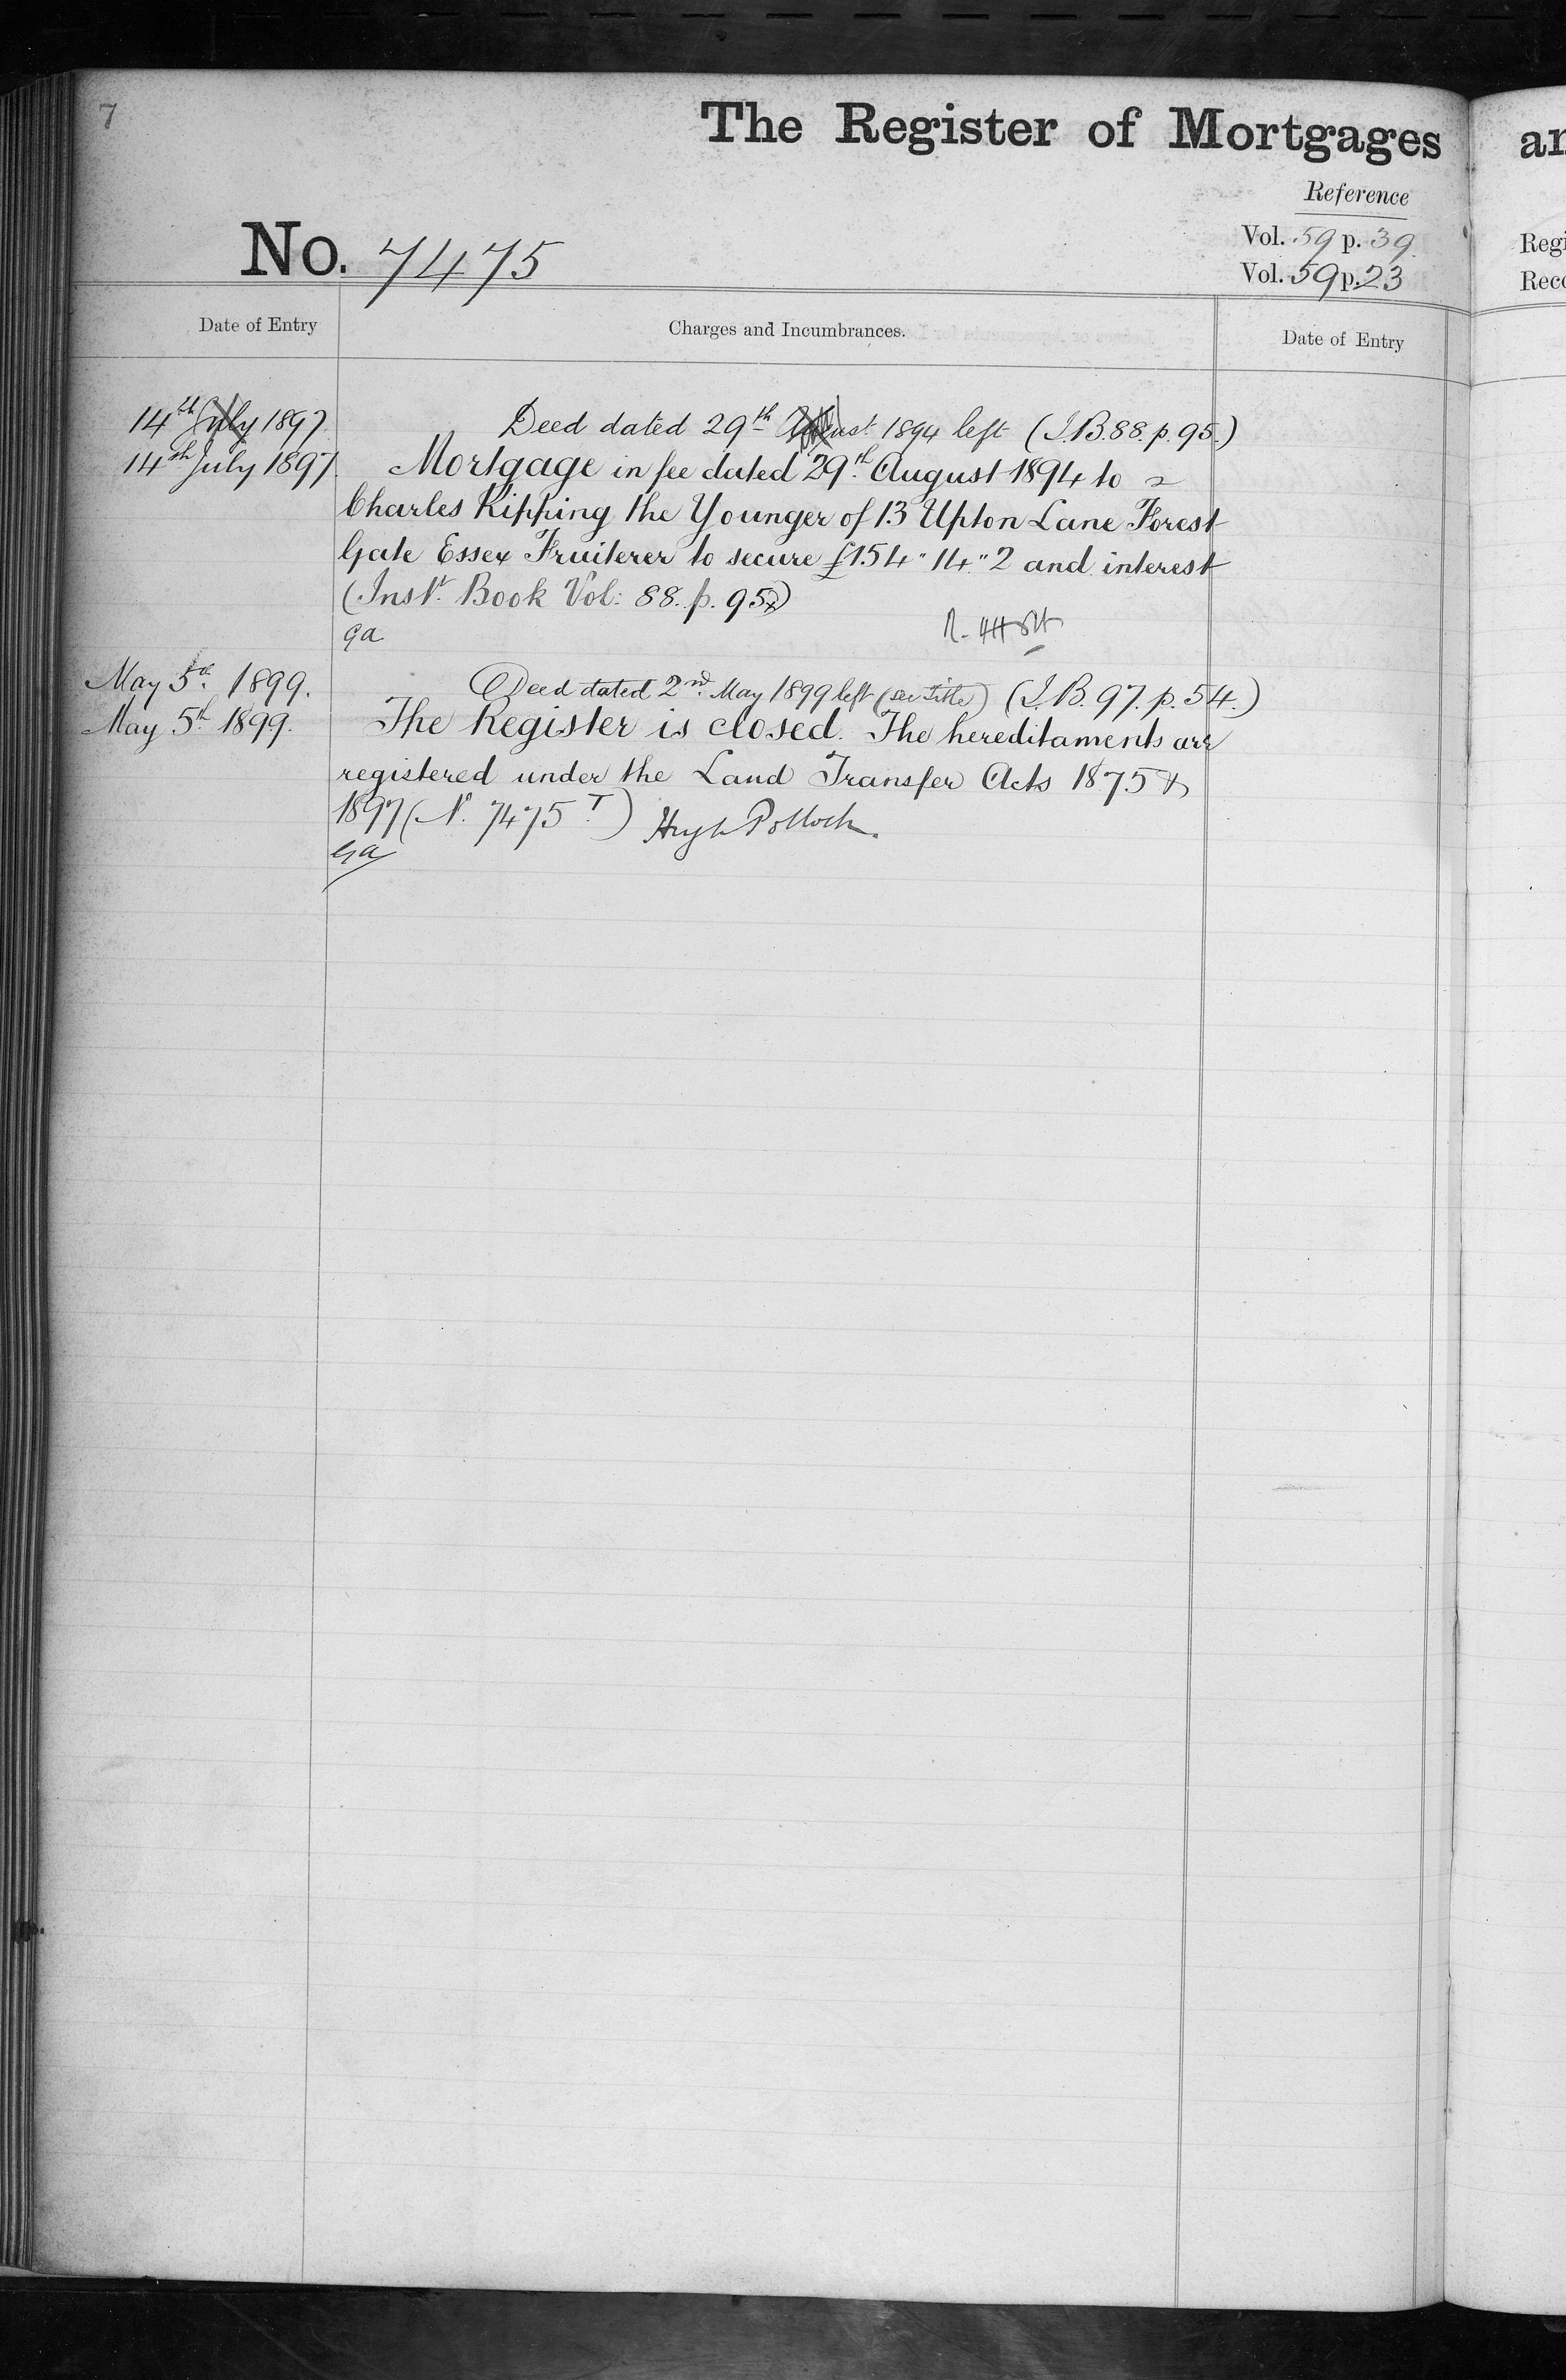 7
The Register of Mortgages
an
Reference
No. 7475
Vol. 59 p. 39
Vol. 59 p. 23
Regi
Reco
Date of Entry
Charges and Incumbrances.
Date of Entry
14th July 1897 Deed dated 29th August 1894 left (I.B. 88. p. 95.)
14th July 1897 Mortgage in fee dated 29th August 1894 to
Charles Kipping the Younger of 13 Upton Lane Forest
Gate Essex Fruiterer to secure £154" 14" 2 and interest
(Inst. Book Vol: 88. p. 95)
ga
May 5th 1899. Deed dated 2nd May 1899 left (see title) (I.B. 97. p. 54.)
May 5th 1899. The Register is closed. The hereditaments are
registered under the Land Transfer Acts 1875 &
1897 (No. 7475 T) Hugh Pollock.
ga